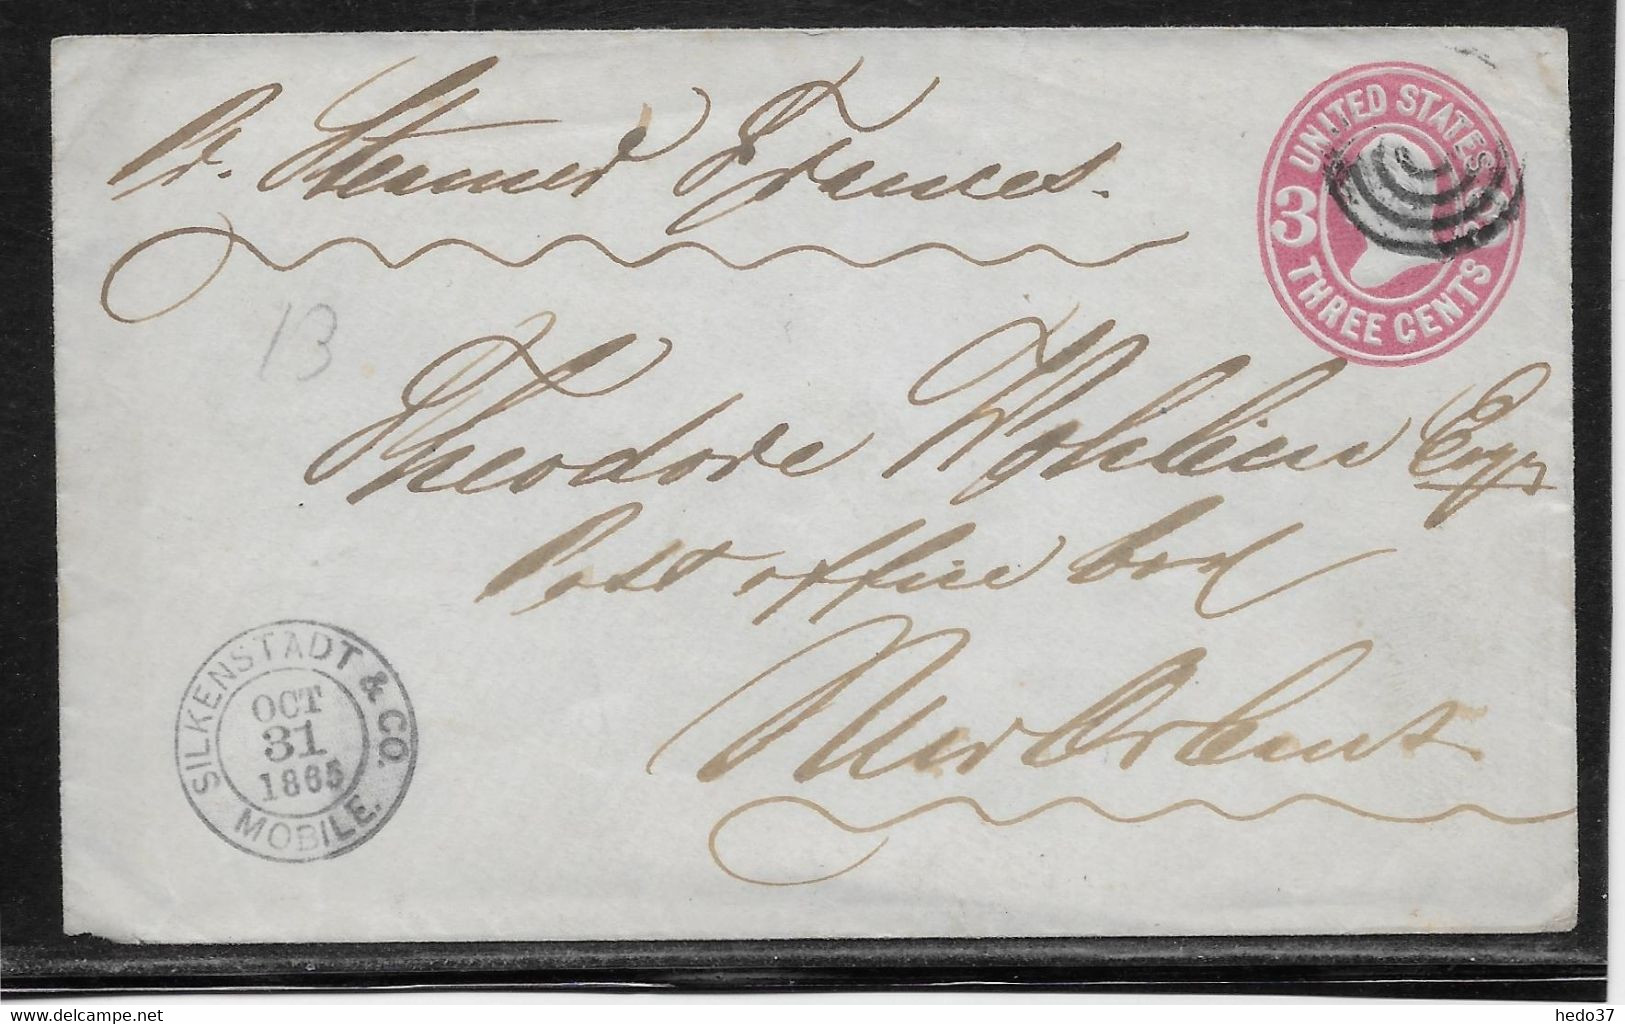 Pr. Steamer Frances.
UNITED STATES
3 3
THREE CENTS
13
Theodore Wohlien Esqr
Post office box
New Orleans
SILKENSTADT & CO.
OCT
31
1865
MOBILE.
www.delcampe.net
hedo37